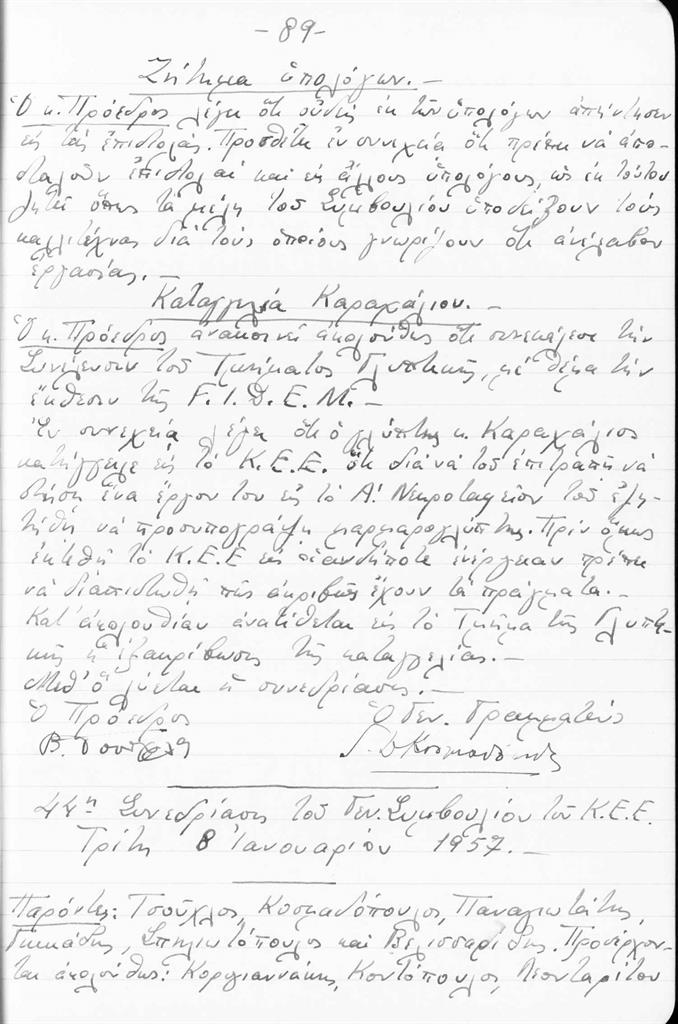 -89-
Ζήτημα ὑπολόγων.-
Ὁ κ. Πρόεδρος λέγει ὅτι οὐδείς ἐκ τῶν ὑπολόγων ἀπήντησεν
εἰς τάς ἐπιστολάς. Προσθέτει ἐν συνεχείᾳ ὅτι πρέπει νά ἀπο-
σταλοῦν ἐπιστολαί καί εἰς ἄλλους ὑπολόγους, ὡς ἐκ τούτου
ζητεῖ ὅπως τά μέλη τοῦ Συμβουλίου ὑποδείξουν τούς
καλλιτέχνας διά τούς ὁποίους γνωρίζουν ὅτι ἀνέλαβον
ἐργασίας.-
Καταγγελία Καραχάλιου.-
Ὁ κ. Πρόεδρος ἀνακοινεῖ ἀκολούθως ὅτι συνεκάλεσε τήν
Συνέλευσιν τοῦ Τμήματος Γλυπτικῆς, μέ θέμα τήν
ἔκθεσιν τῆς F.I.D.E.M.-
Ἐν συνεχείᾳ λέγει ὅτι ὁ γλύπτης κ. Καραχάλιος
κατήγγειλε εἰς τό Κ.Ε.Ε. ὅτι διά νά τοῦ ἐπιτραπῇ νά
στήσῃ ἕνα ἔργον του εἰς τό Α! Νεκροταφεῖον τοῦ ἐζη-
τήθη νά προσυπογράψῃ μαρμαρογλύπτης. Πρίν ὅμως
ἐκτεθῇ τό Κ.Ε.Ε εἰς οἱανδήποτε ἐνέργειαν πρέπει
νά διαπιστωθῇ πῶς ἀκριβῶς ἔχουν τά πράγματα.-
Κατ' ἀκολουθίαν ἀνατίθεται εἰς τό Τμῆμα τῆς Γλυπτι-
κῆς ἡ ἐξακρίβωσις τῆς καταγγελίας.-
Μεθ' ὅ λύεται ἡ συνεδρίασις.-
Ὁ Πρόεδρος Ὁ Γεν. Γραμματεύς
44η Συνεδρίασις τοῦ Γεν. Συμβουλίου τοῦ Κ.Ε.Ε.
Τρίτη 8 Ἰανουαρίου 1957.-
Παρόντες: Τσοῦχλος, Κοσμαδόπουλος, Παναγιωτάτης,
Σπηλιωτόπουλος καί Βελισσαρίδης. Προσέρχον-
ται ἀκολούθως: Κοργιαννάκης, Κοντόπουλος, Λεονταρίτου